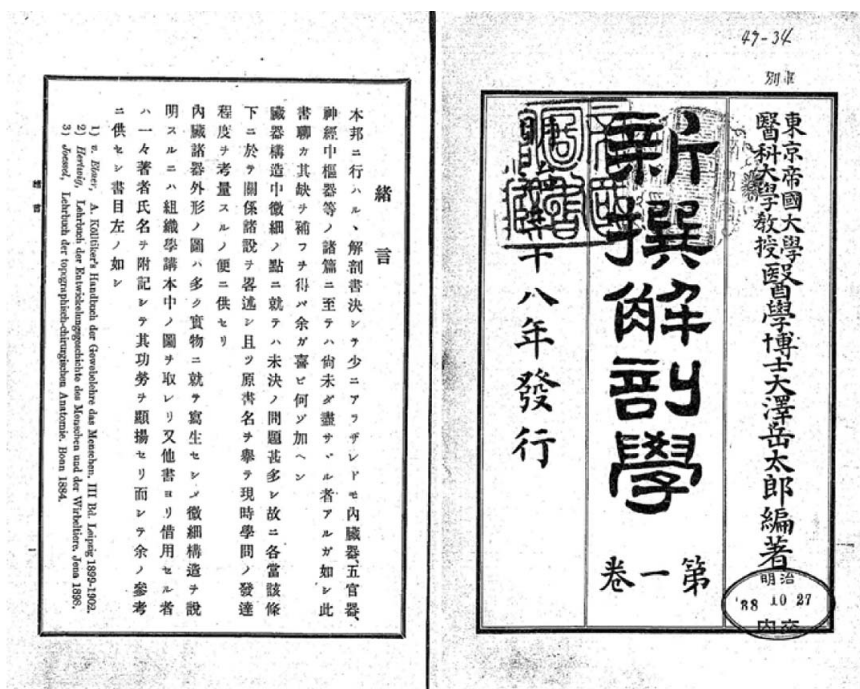 47-34
東京帝國大學
醫科大學教授
醫學博士大澤岳太郎編著
新撰解剖學
第一卷
十八年發行
明治
38 10 27
內交
緒言
本邦ニ行ハル、解剖書決シテ少ニアラザレドモ內臟器、五官器、
神經中樞器等ノ諸篇ニ至テハ尙未ダ盡サヾル者アルガ如シ此
書聊カ其缺ヲ補フヲ得バ余ガ喜ビ何ゾ加ヘン
臟器構造中微細ノ點ニ就テハ未決ノ問題甚多シ故ニ各當該條
下ニ於テ關係諸說ヲ畧述シ且ツ原書名ヲ擧ゲ現時學問ノ發達
程度ヲ考量スルノ便ニ供セリ
內臟諸器外形ノ圖ハ多ク實物ニ就テ寫生セシメ微細構造ヲ說
明スルニハ組織學講本中ノ圖ヲ取レリ又他書ヨリ借用セル者
ハ一々著者氏名ヲ附記シテ其功勞ヲ顯揚セリ而シテ余ノ參考
ニ供セシ書目左ノ如シ
1) v. Ebner, A. Kölliker's Handbuch der Gewebelehre das Menschen, III Bd. Leipzig 1899-1902.
2) Hertwig, Lehrbuch der Entwickelungsgeschichte des Menschen und der Wirbeltiere. Jena 1898.
3) Joessel, Lehrbuch der topographisch-chirurgischen Anatomie. Bonn 1884.
緒言
一